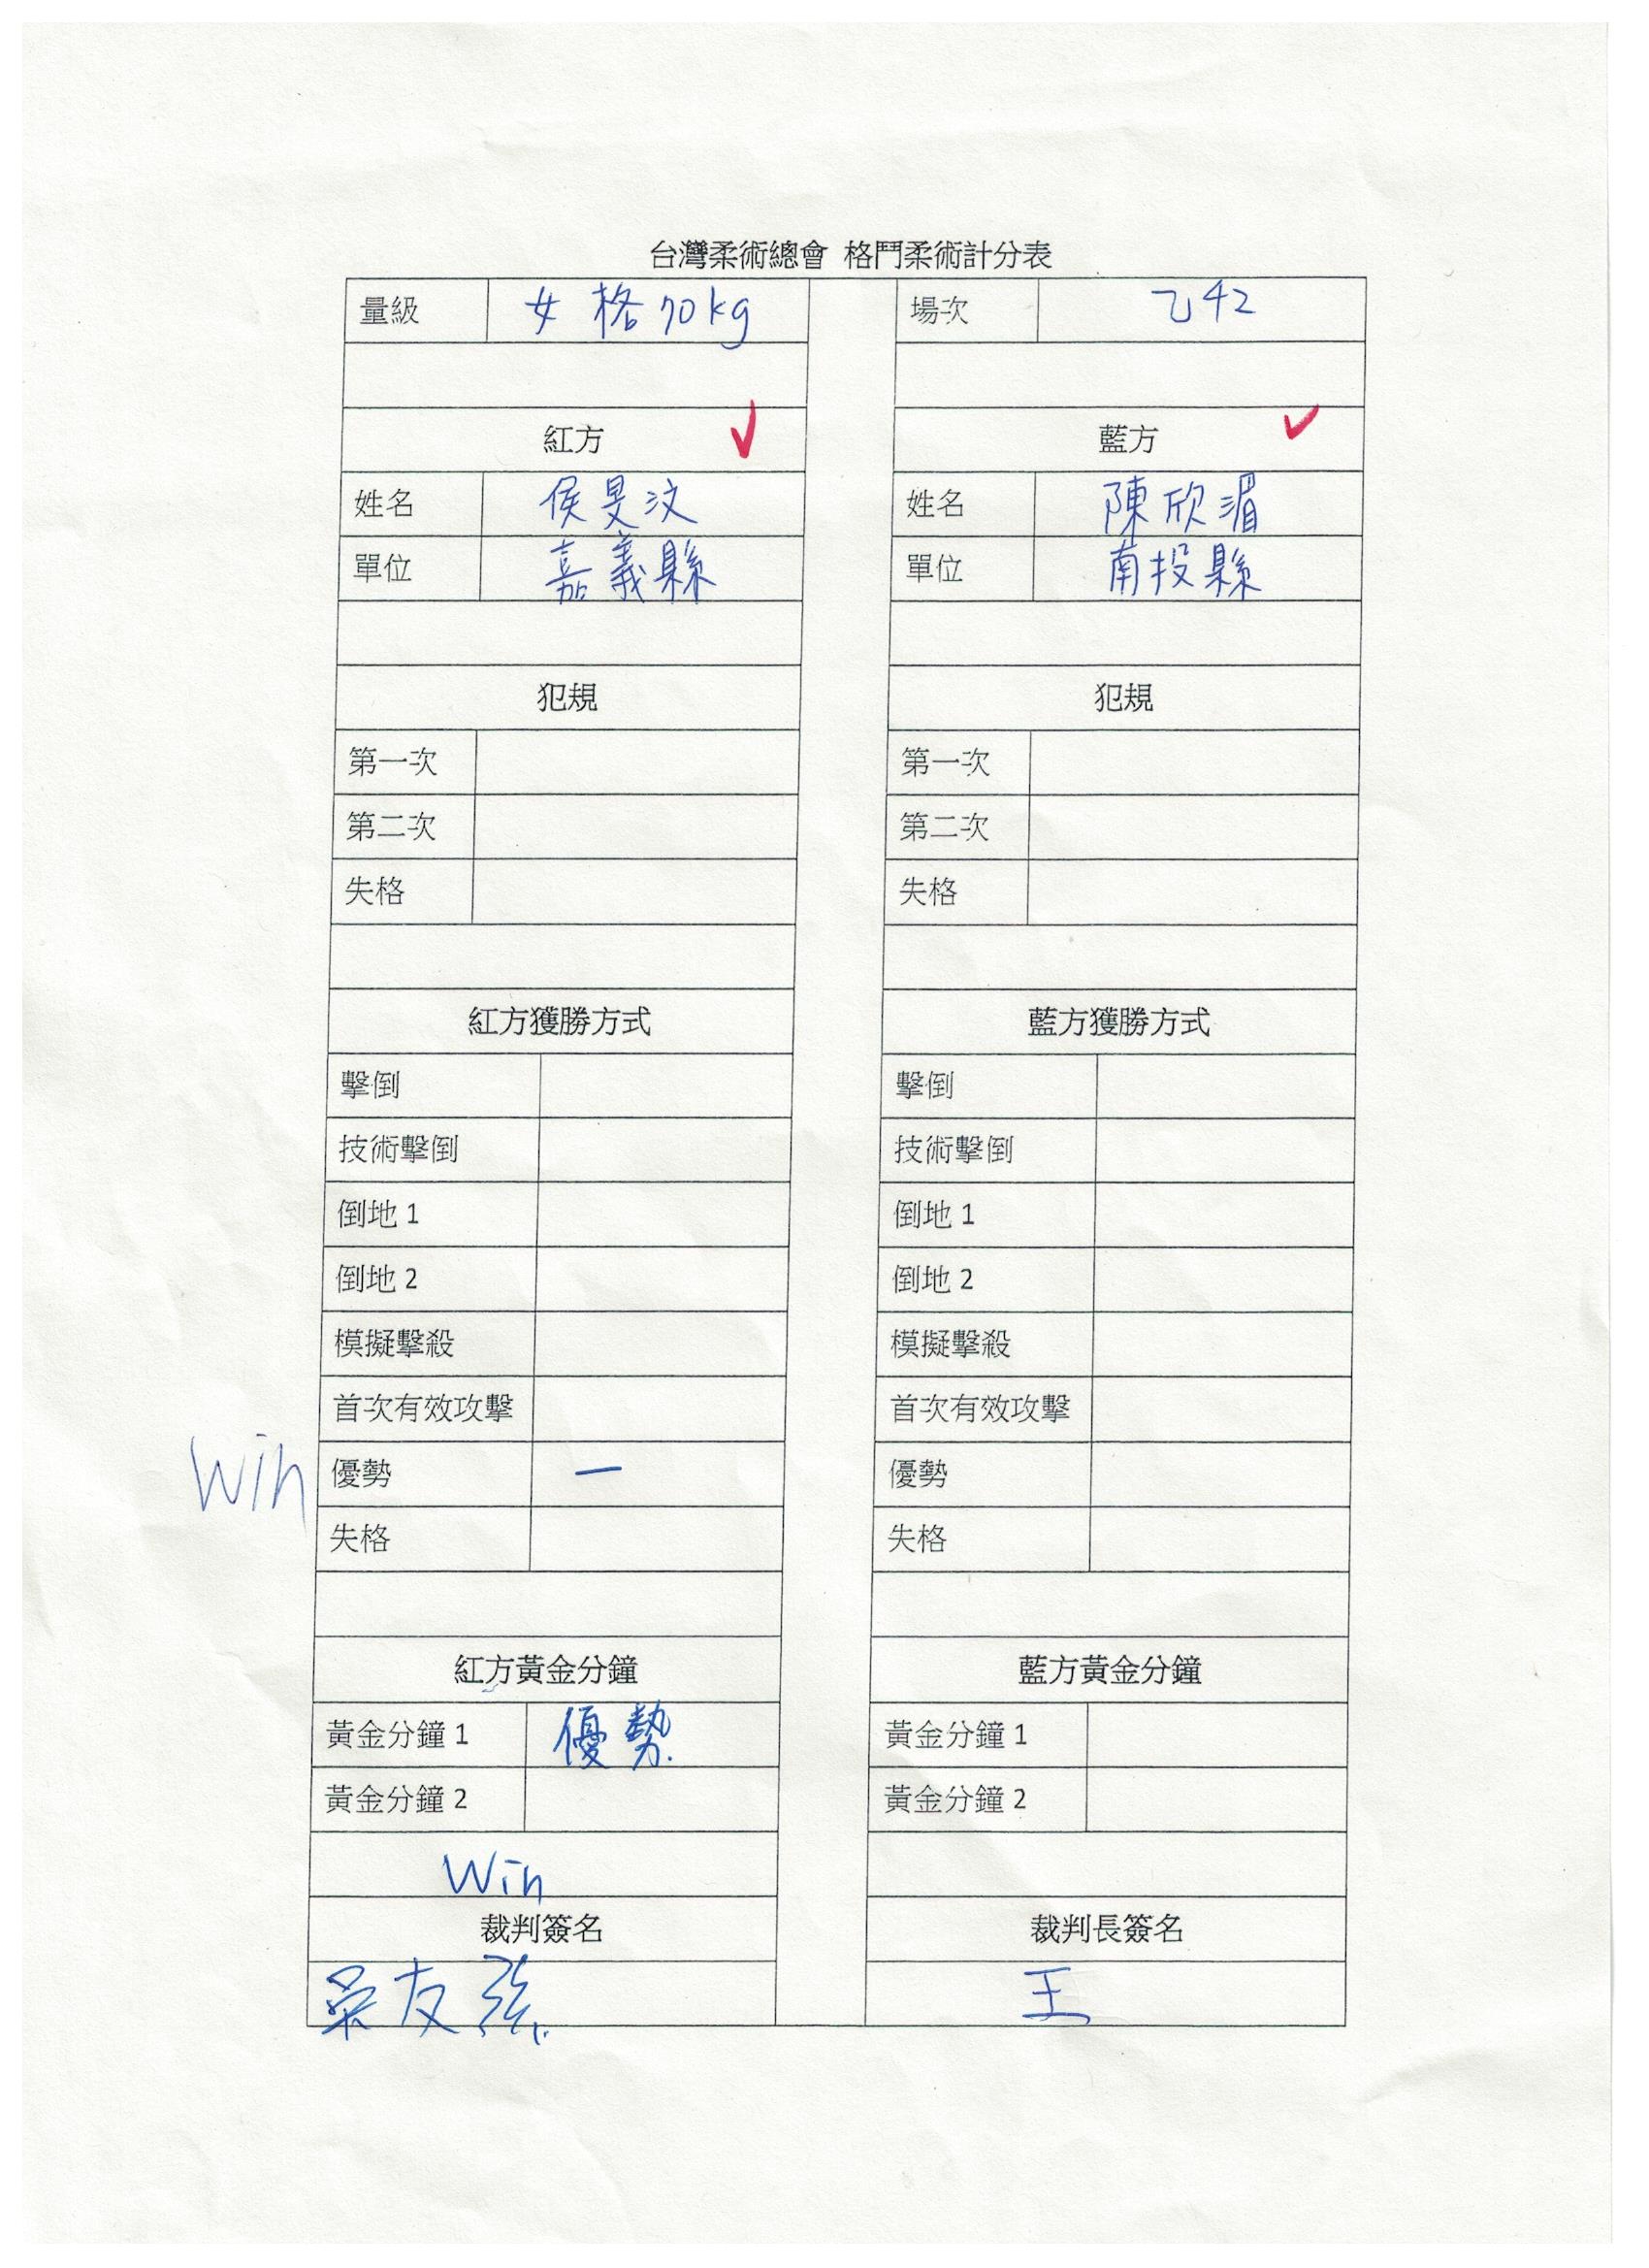 台灣柔術總會 格鬥柔術計分表
量級 女格70kg 場次 乙42
紅方 藍方
姓名 侯旻汶 姓名 陳欣湄
單位 嘉義縣 單位 南投縣
犯規 犯規
第一次 第一次
第二次 第二次
失格 失格
紅方獲勝方式 藍方獲勝方式
擊倒 擊倒
技術擊倒 技術擊倒
倒地 1 倒地 1
倒地 2 倒地 2
模擬擊殺 模擬擊殺
首次有效攻擊 首次有效攻擊
Win 優勢 一 優勢
失格 失格
紅方黃金分鐘 藍方黃金分鐘
黃金分鐘 1 優勢 黃金分鐘 1
黃金分鐘 2 黃金分鐘 2
Win
裁判簽名 裁判長簽名
吳友 王